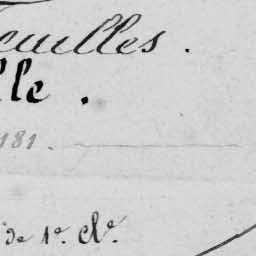 euilles.
lle.
181.
de 1e. Cle.